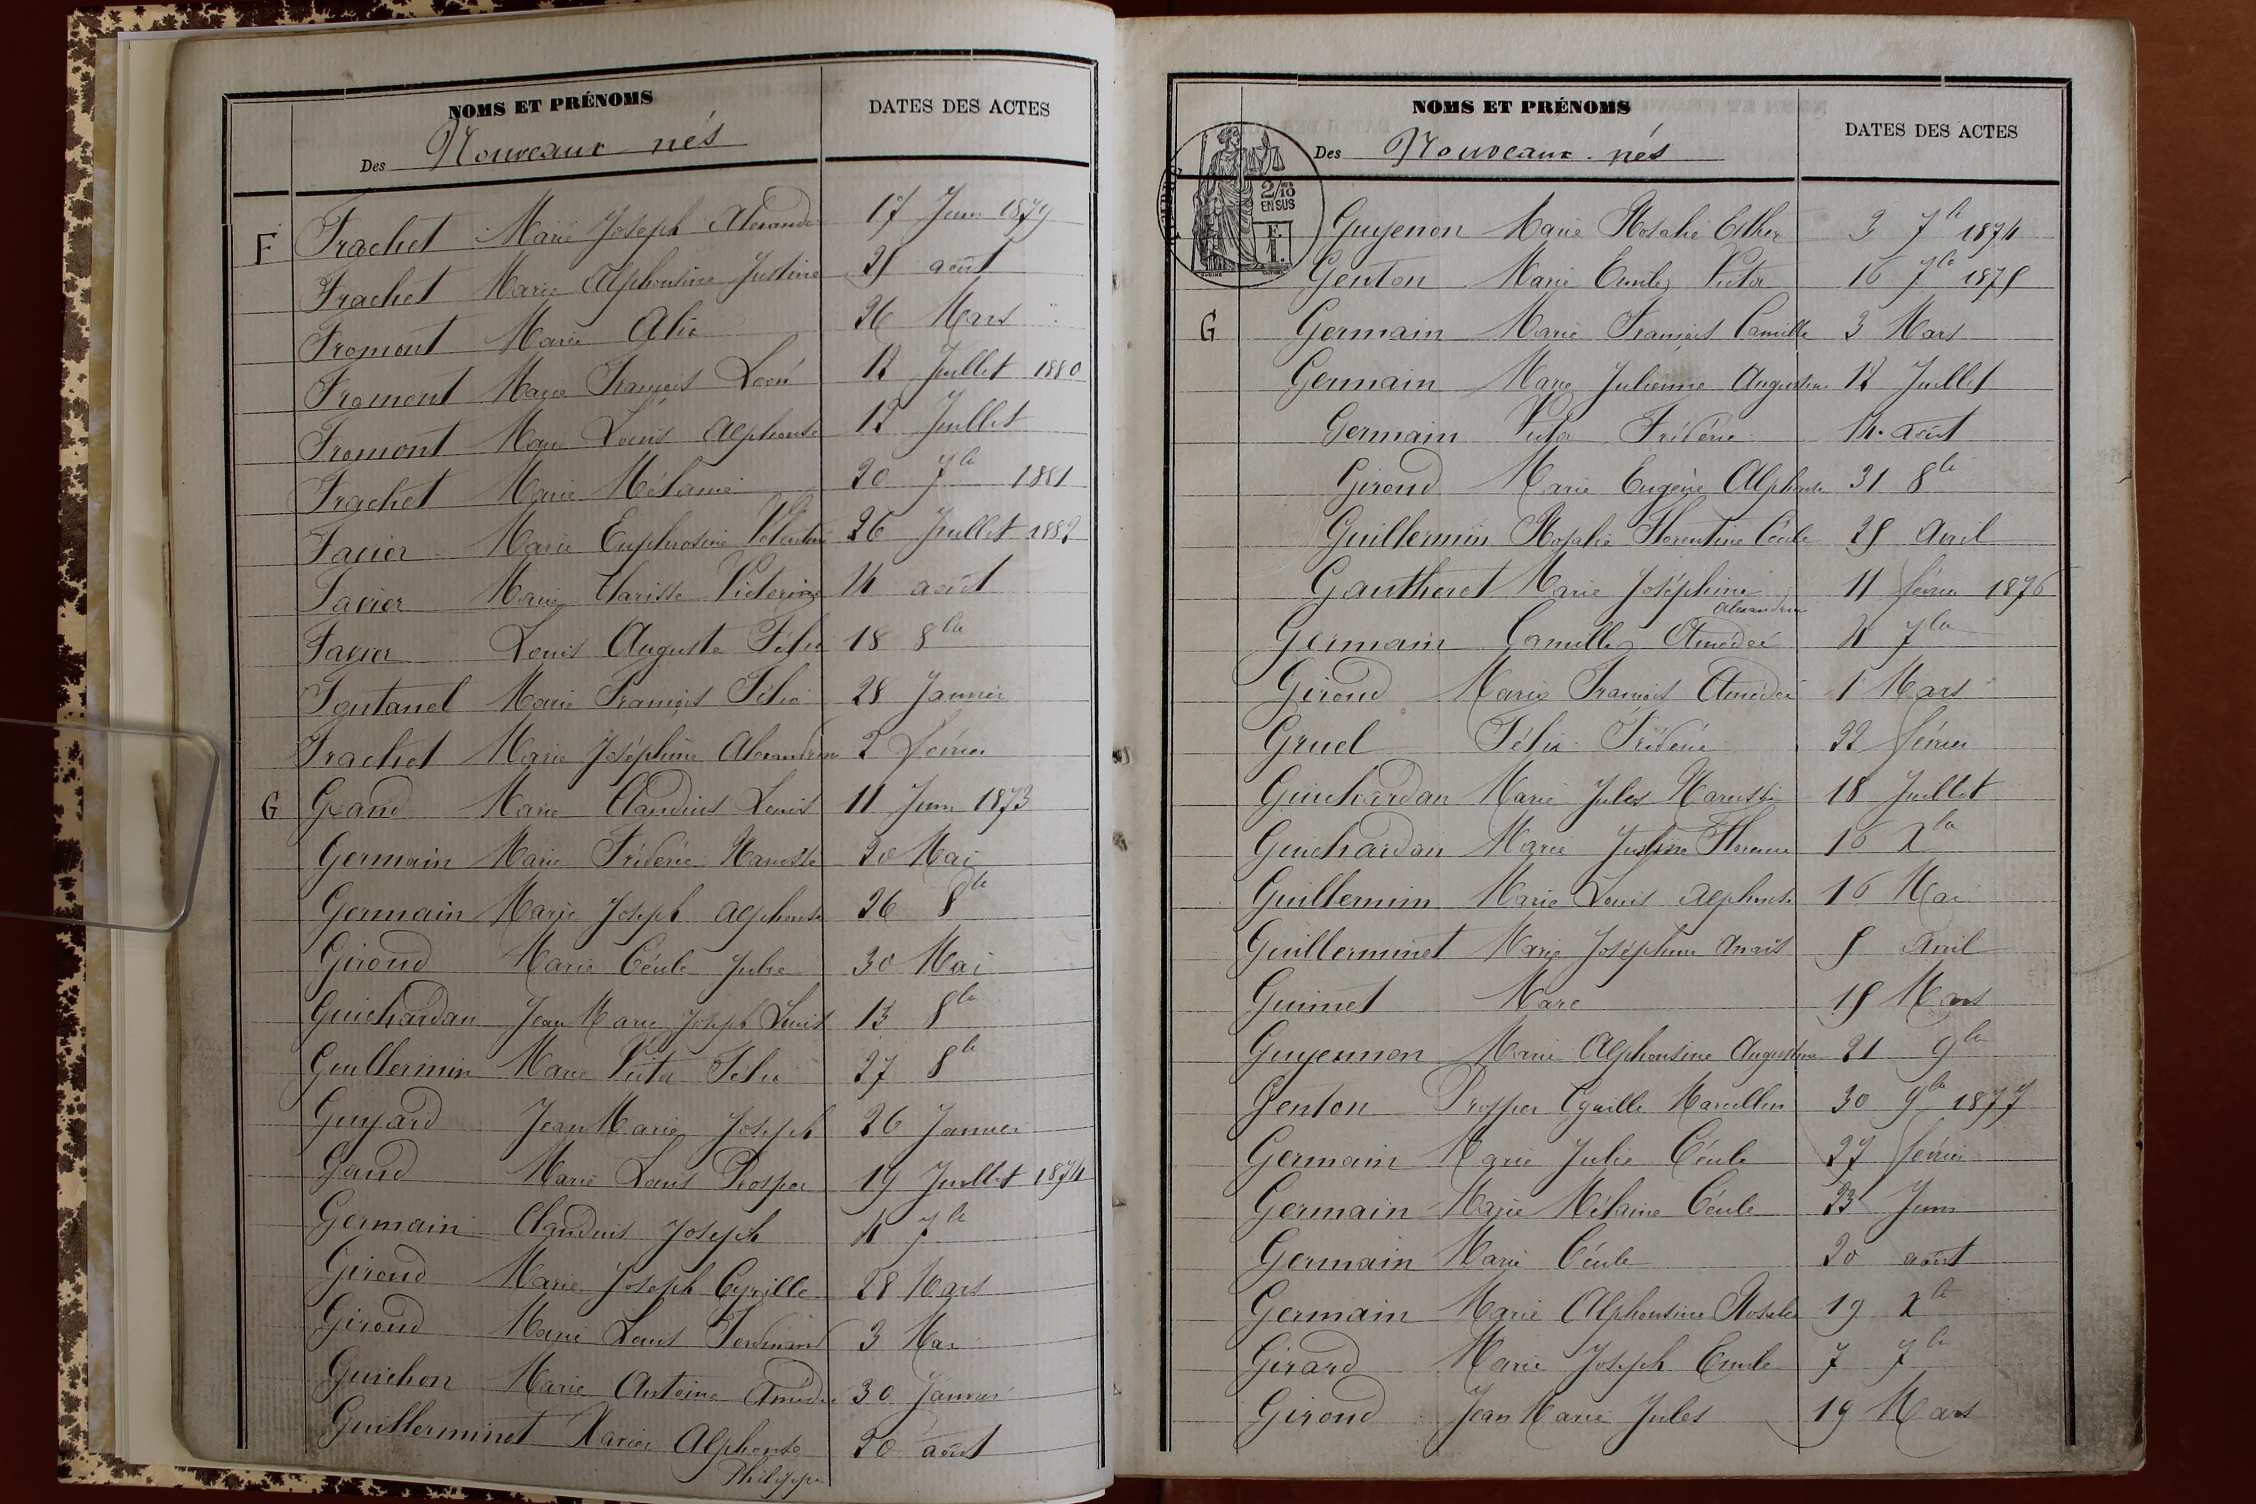 NOMS ET PRÉNOMS DATES DES ACTES
Des Nouveaux-nés
F Frachet Marie Joseph Alexandre 17 Juin 1879
Frachet Marie Alphonsine Justine 25 août
Fromont Marie Alix 26 Mars
Fromont Marie François Léon 12 Juillet 1880
Fromont Marie Louis Alphonse 12 Juillet
Frachet Marie Mélanie 20 7bre 1881
Favier Marie Euphrosine Valentine 26 Juillet 1882
Favier Marie Clarisse Victorine 14 août
Favier Louis Auguste Félix 18 8bre
Fontanel Marie François Félix 28 Janvier
Frachet Marie Joséphine Alexandrine 2 février
G Grand Marie Claudius Louis 11 Juin 1873
Germain Marie Frédéric 20 Mai
Germain Marie Joseph Alphonse 26 8bre
Girond Marie Cécile Julie 30 Mai
Guichardan Jean Marie Joseph Louis 13 8bre
Guillermin Marie Victor Félix 27 8bre
Guyard Jean Marie Joseph 26 Janvier
Gand Marie Louis Prosper 19 Juillet 1874
Germain Claudius Joseph 4 7bre
Girond Marie Joseph Cyrille 28 Mars
Girond Marie Louis Ferdinand 3 Mai
Guichon Marie Antoine Amédée 30 Janvier
Guillerminet Xavier Alphonse 20 août
Philippe
NOMS ET PRÉNOMS DATES DES ACTES
Des Nouveaux-nés
2/10 EN SUS
F. 1.
Guyenon Marie Rosalie Esther 3 7bre 1874
Genton Marie Emile Victor 16 7bre 1875
G Germain Marie François Camille 3 Mars
Germain Marie Julienne Augustine 12 Juillet
Germain Victor Frédéric 14 août
Girond Marie Eugène Alphonse 31 8bre
Guillermin Rosalie Florentine Cécile 25 Avril
Gautheret Marie Joséphine 11 février 1876
Alexandrine
Germain Camille Amédée 4 7bre
Girond Marie François Amédée 1 Mars
Gruel Félix Frédéric 22 février
Guichardan Marie Jules 18 Juillet
Guichardan Marie Justine Florence 16 Xbre
Guillermin Marie Louis Alphonse 16 Mai
Guillerminet Marie Joséphine Anaïs 5 Avril
Guimet Marc 15 Mars
Guyennon Marie Alphonsine Augustine 21 9bre
Genton Prosper Cyrille Marcellin 30 9bre 1877
Germain Marie Julie Cécile 27 février
Germain Marie Mélanie Cécile 23 Juin
Germain Marie Cécile 20 août
Germain Marie Alphonsine Rosalie 19 Xbre
Girard Marie Joseph Emile 7 7bre
Girond Jean Marie Jules 19 Mars